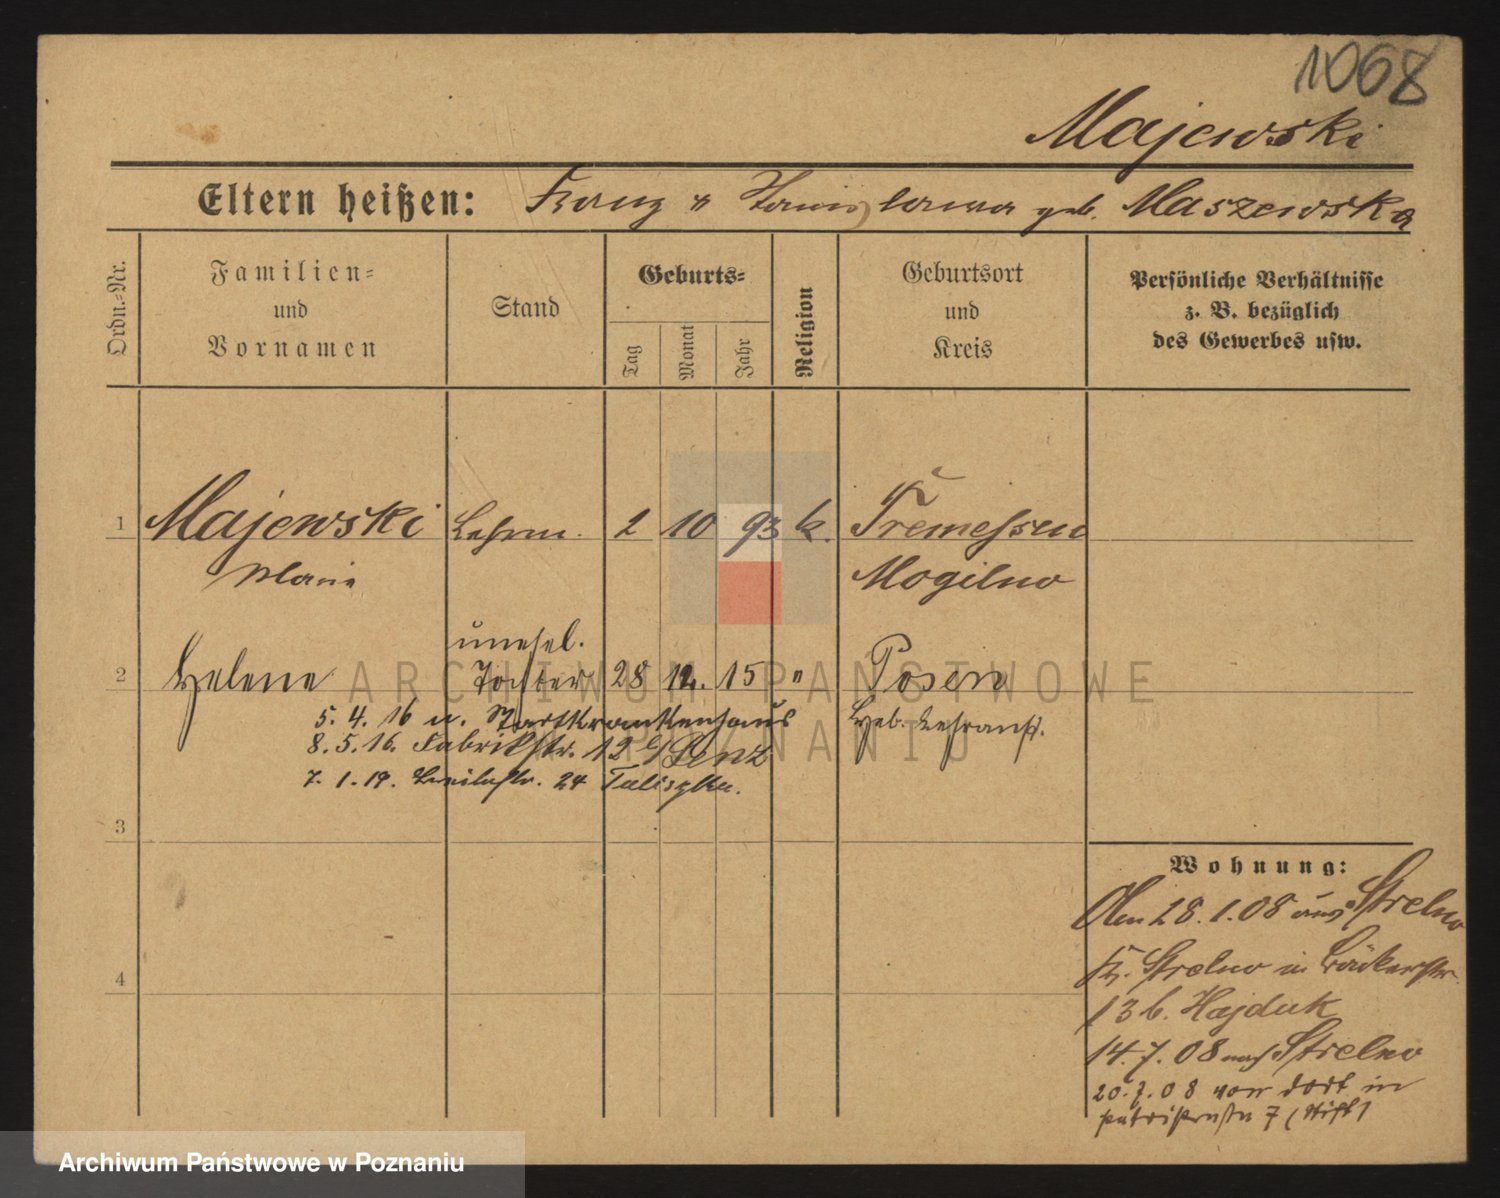 1068
Majewski
Eltern heißen: Franz u Stanislawa geb. Maszewska
Ordn.=Nr.
Familien=
und
Vornamen
Stand
Geburts=
Tag
Monat
Jahr
Religion
Geburtsort
und
Kreis
Persönliche Verhältnisse
z. B. bezüglich
des Gewerbes usw.
1 Majewski 2 10 93 k. Tremessen
Marie Mogilno
unehel.
2 Helene Tochter 28 12. 15 " Posen
5. 4. 16 u. Stadtkrankenhaus Heb. Lehranst.
8. 5. 16. Fabrikstr. 12 b/Lenz
7. 1. 19. 24
3
4
Wohnung:
Den 28. 1. 08 aus Strelno
Kr. Strelno in Bäckerstr
13 b. Hajduk
14. 7. 08 nach Strelno
20. 7. 08 von dort in
7 (Stift)
ARCHIWUM PAŃSTWOWE
W POZNANIU
Archiwum Państwowe w Poznaniu